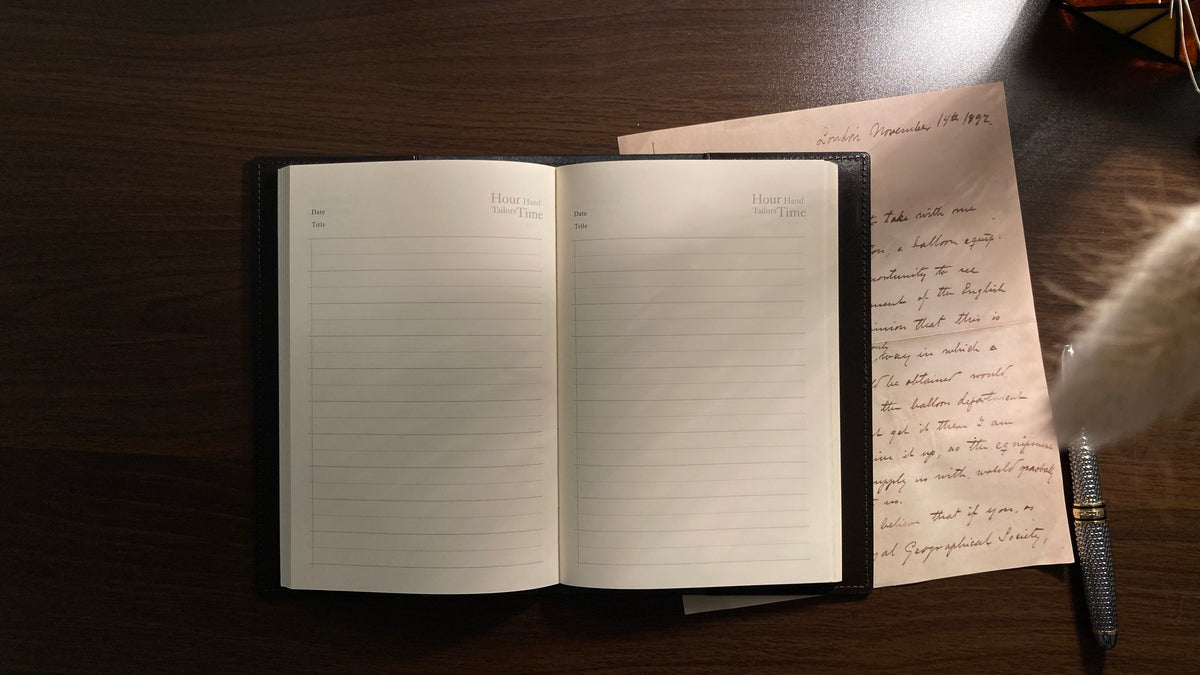 Hour Hand
Tailors Time
Date
Title
Hour Hand
Tailors Time
Date
Title
London November 14th 1892.
to take with one
a balloon equip-
to see
of the English
that this is
only
way in which a
be obtained would
the balloon department
get it then I am
it up, as the equipment
us with, would probably
us.
believe that if you, as
Geographical Society,